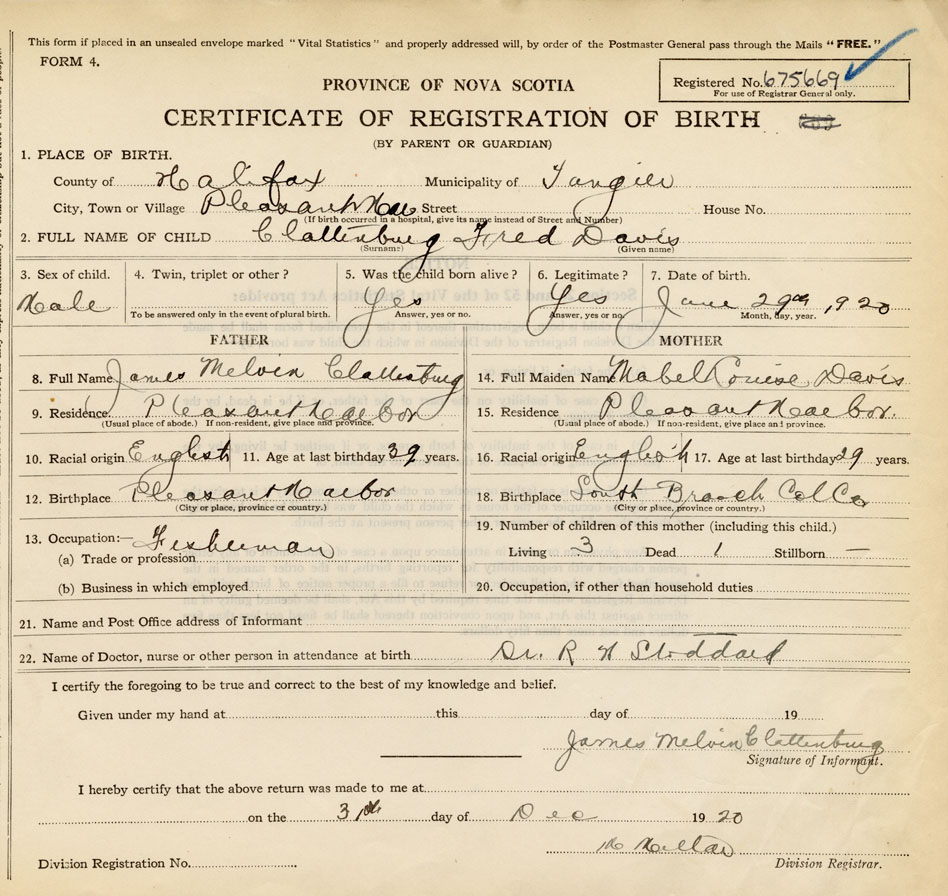 This form if placed in an unsealed envelope marked "Vital Statistics" and properly addressed will, by order of the Postmaster General pass through the Mails "FREE."
FORM 4.
Registered No. 675669
For use of Registrar General only.
PROVINCE OF NOVA SCOTIA
CERTIFICATE OF REGISTRATION OF BIRTH
(BY PARENT OR GUARDIAN)
1. PLACE OF BIRTH.
County of Halifax Municipality of Tangier
City, Town or Village Pleasant Har Street House No.
(If birth occurred in a hospital, give its name instead of Street and Number)
2. FULL NAME OF CHILD Clattenburg Fred Davis
(Surname) (Given name)
3. Sex of child. 4. Twin, triplet or other? 5. Was the child born alive? 6. Legitimate? 7. Date of birth.
Male Yes Yes 29th, 1920
To be answered only in the event of plural birth. Answer, yes or no. Answer, yes or no. Month, day, year.
FATHER MOTHER
8. Full Name James Melvin Clattenburg 14. Full Maiden Name Mabel Louise Davis
9. Residence. Pleasant Harbor 15. Residence Pleasant Harbor.
(Usual place of abode.) If non-resident, give place and province. (Usual place of abode.) If non-resident, give place and province.
10. Racial origin English 11. Age at last birthday 39 years. 16. Racial origin English 17. Age at last birthday 29 years.
12. Birthplace Pleasant Harbor 18. Birthplace South Branch Col Co
(City or place, province or country.) (City or place, province or country.)
13. Occupation:— Fisherman 19. Number of children of this mother (including this child.)
(a) Trade or profession Living 3 Dead 1 Stillborn —
(b) Business in which employed 20. Occupation, if other than household duties
21. Name and Post Office address of Informant
22. Name of Doctor, nurse or other person in attendance at birth Dr. R H Stoddard
I certify the foregoing to be true and correct to the best of my knowledge and belief.
Given under my hand at this day of 19
James Melvin Clattenburg
Signature of Informant.
I hereby certify that the above return was made to me at
on the 31th day of Dec 1920
Division Registration No. Division Registrar.